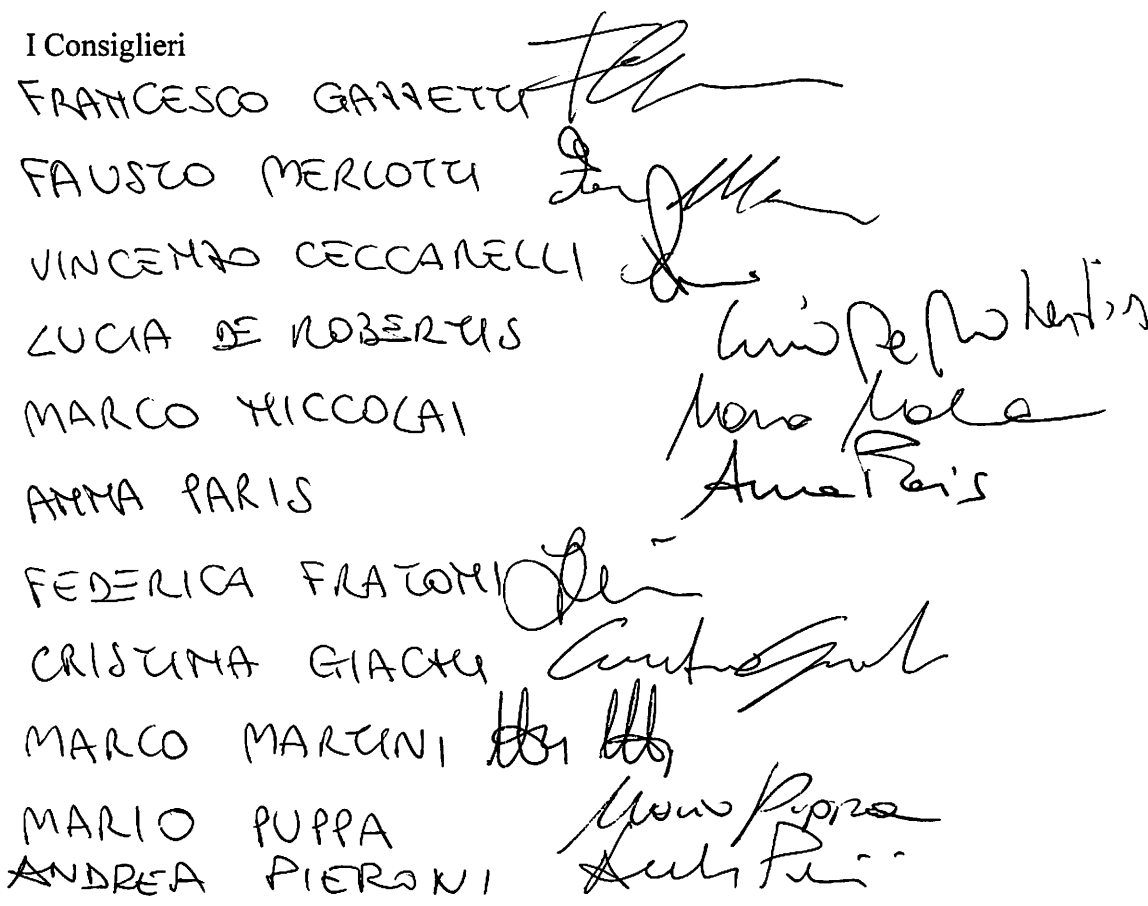 I Consiglieri
FRANCESCO GAZZETTI
FAUSTO MERLOTTI
VINCENZO CECCARELLI
LUCIA DE ROBERTIS Lucia De Robertis
MARCO NICCOLAI
ANNA PARIS Anna Paris
FEDERICA FRATONI
CRISTINA GIACHI
MARCO MARTINI
MARIO PUPPA Mario Puppa
ANDREA PIERONI